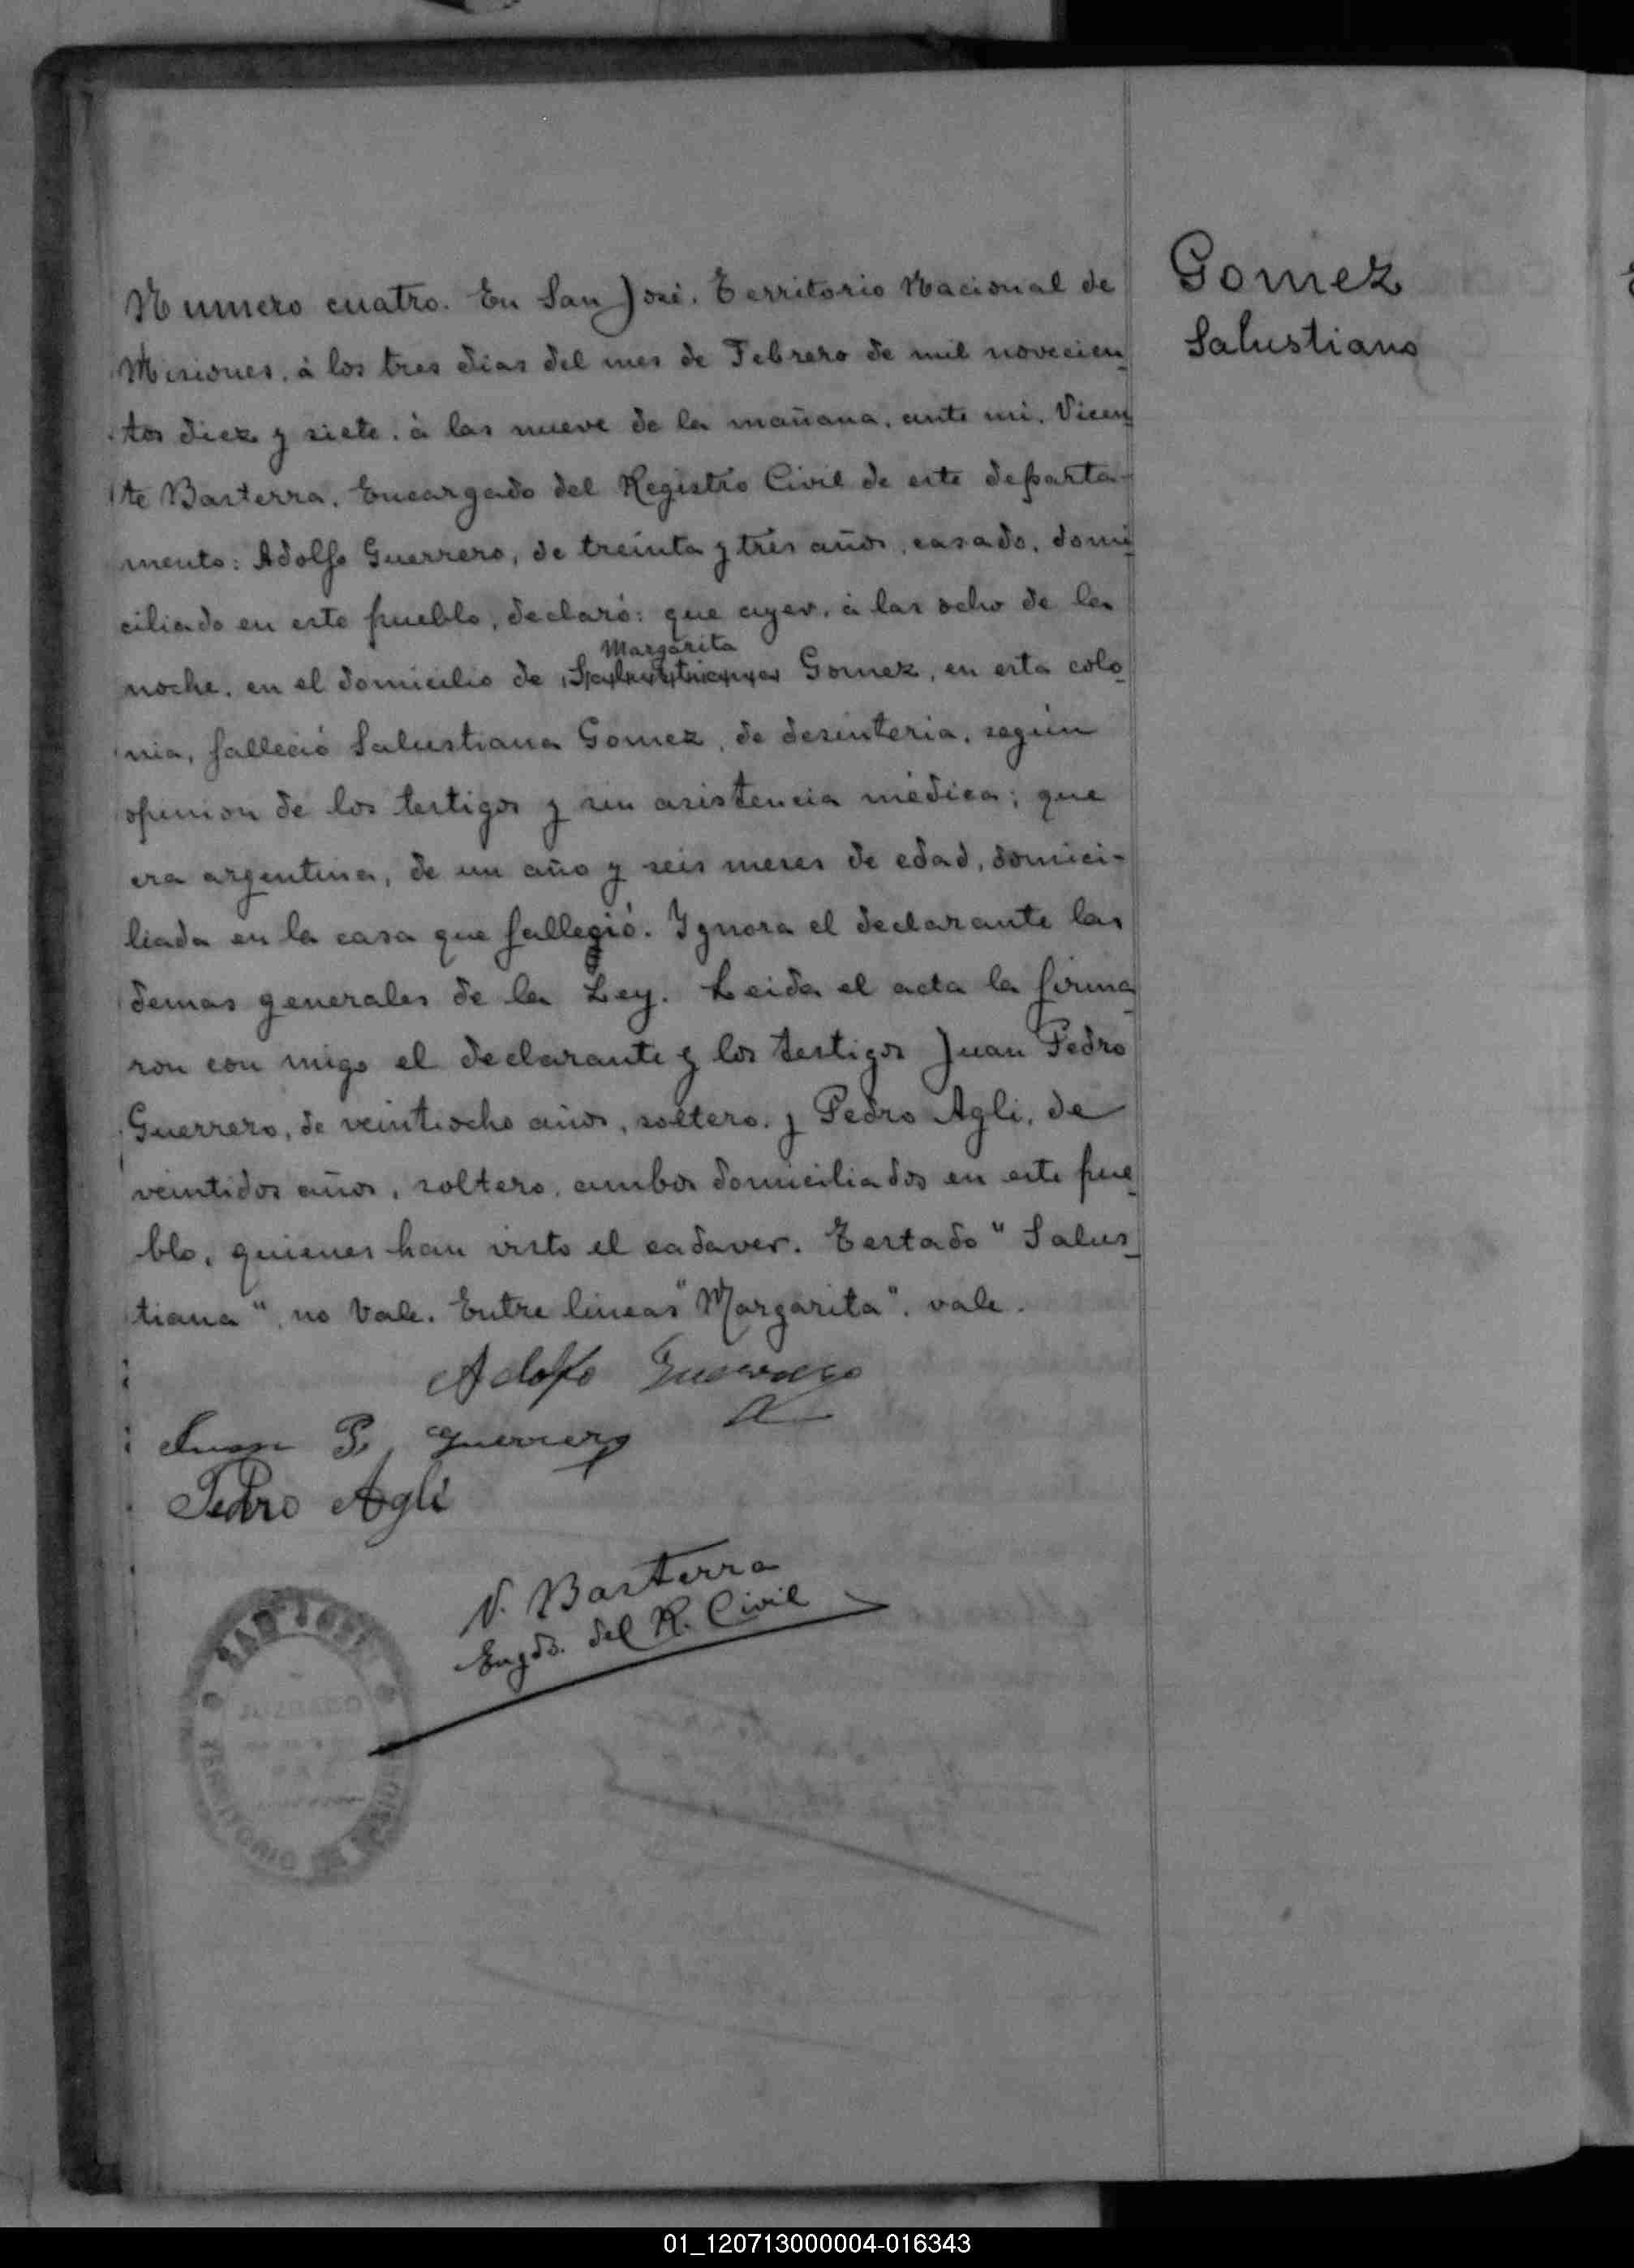 Gomez
Salustiano
Numero cuatro. En San José, Territorio Nacional de
Misiones, á los tres dias del mes de Febrero de mil novecien_
tos diez y siete, á las nueve de la mañana, ante mi, Vicen_
te Basterra, Encargado del Registro Civil de este departa-
mento: Adolfo Guerrero, de treinta y tres años, casado, domi_
ciliado en este pueblo, declaró: que ayer, á las ocho de la
Margarita
noche, en el domicilio de Salustiana Gomez, en esta colo_
nia, falleció Salustiana Gomez, de desinteria, según
opinion de los testigos y sin asistencia médica; que
era argentina, de un año y seis meses de edad, domici-
liada en la casa que fallegió. Ignora el declarante las
demas generales de la Ley. Leida el acta la firma_
ron con migo el declarante y los testigos Juan Pedro
Guerrero, de veintiocho años, soltero, y Pedro Agli, de
veintidos años, soltero, ambos domiciliados en este pue_
blo, quienes han visto el cadaver. Testado "Salus_
tiana", no vale. Entre lineas "Margarita", vale.
Adolfo Guerrero
Juan P. Guerrero
Pedro Agli
V. Basterra
Engdo. del R. Civil
SAN JOSE
JUZGADO
PAZ
TERRITORIO
01_120713000004-016343